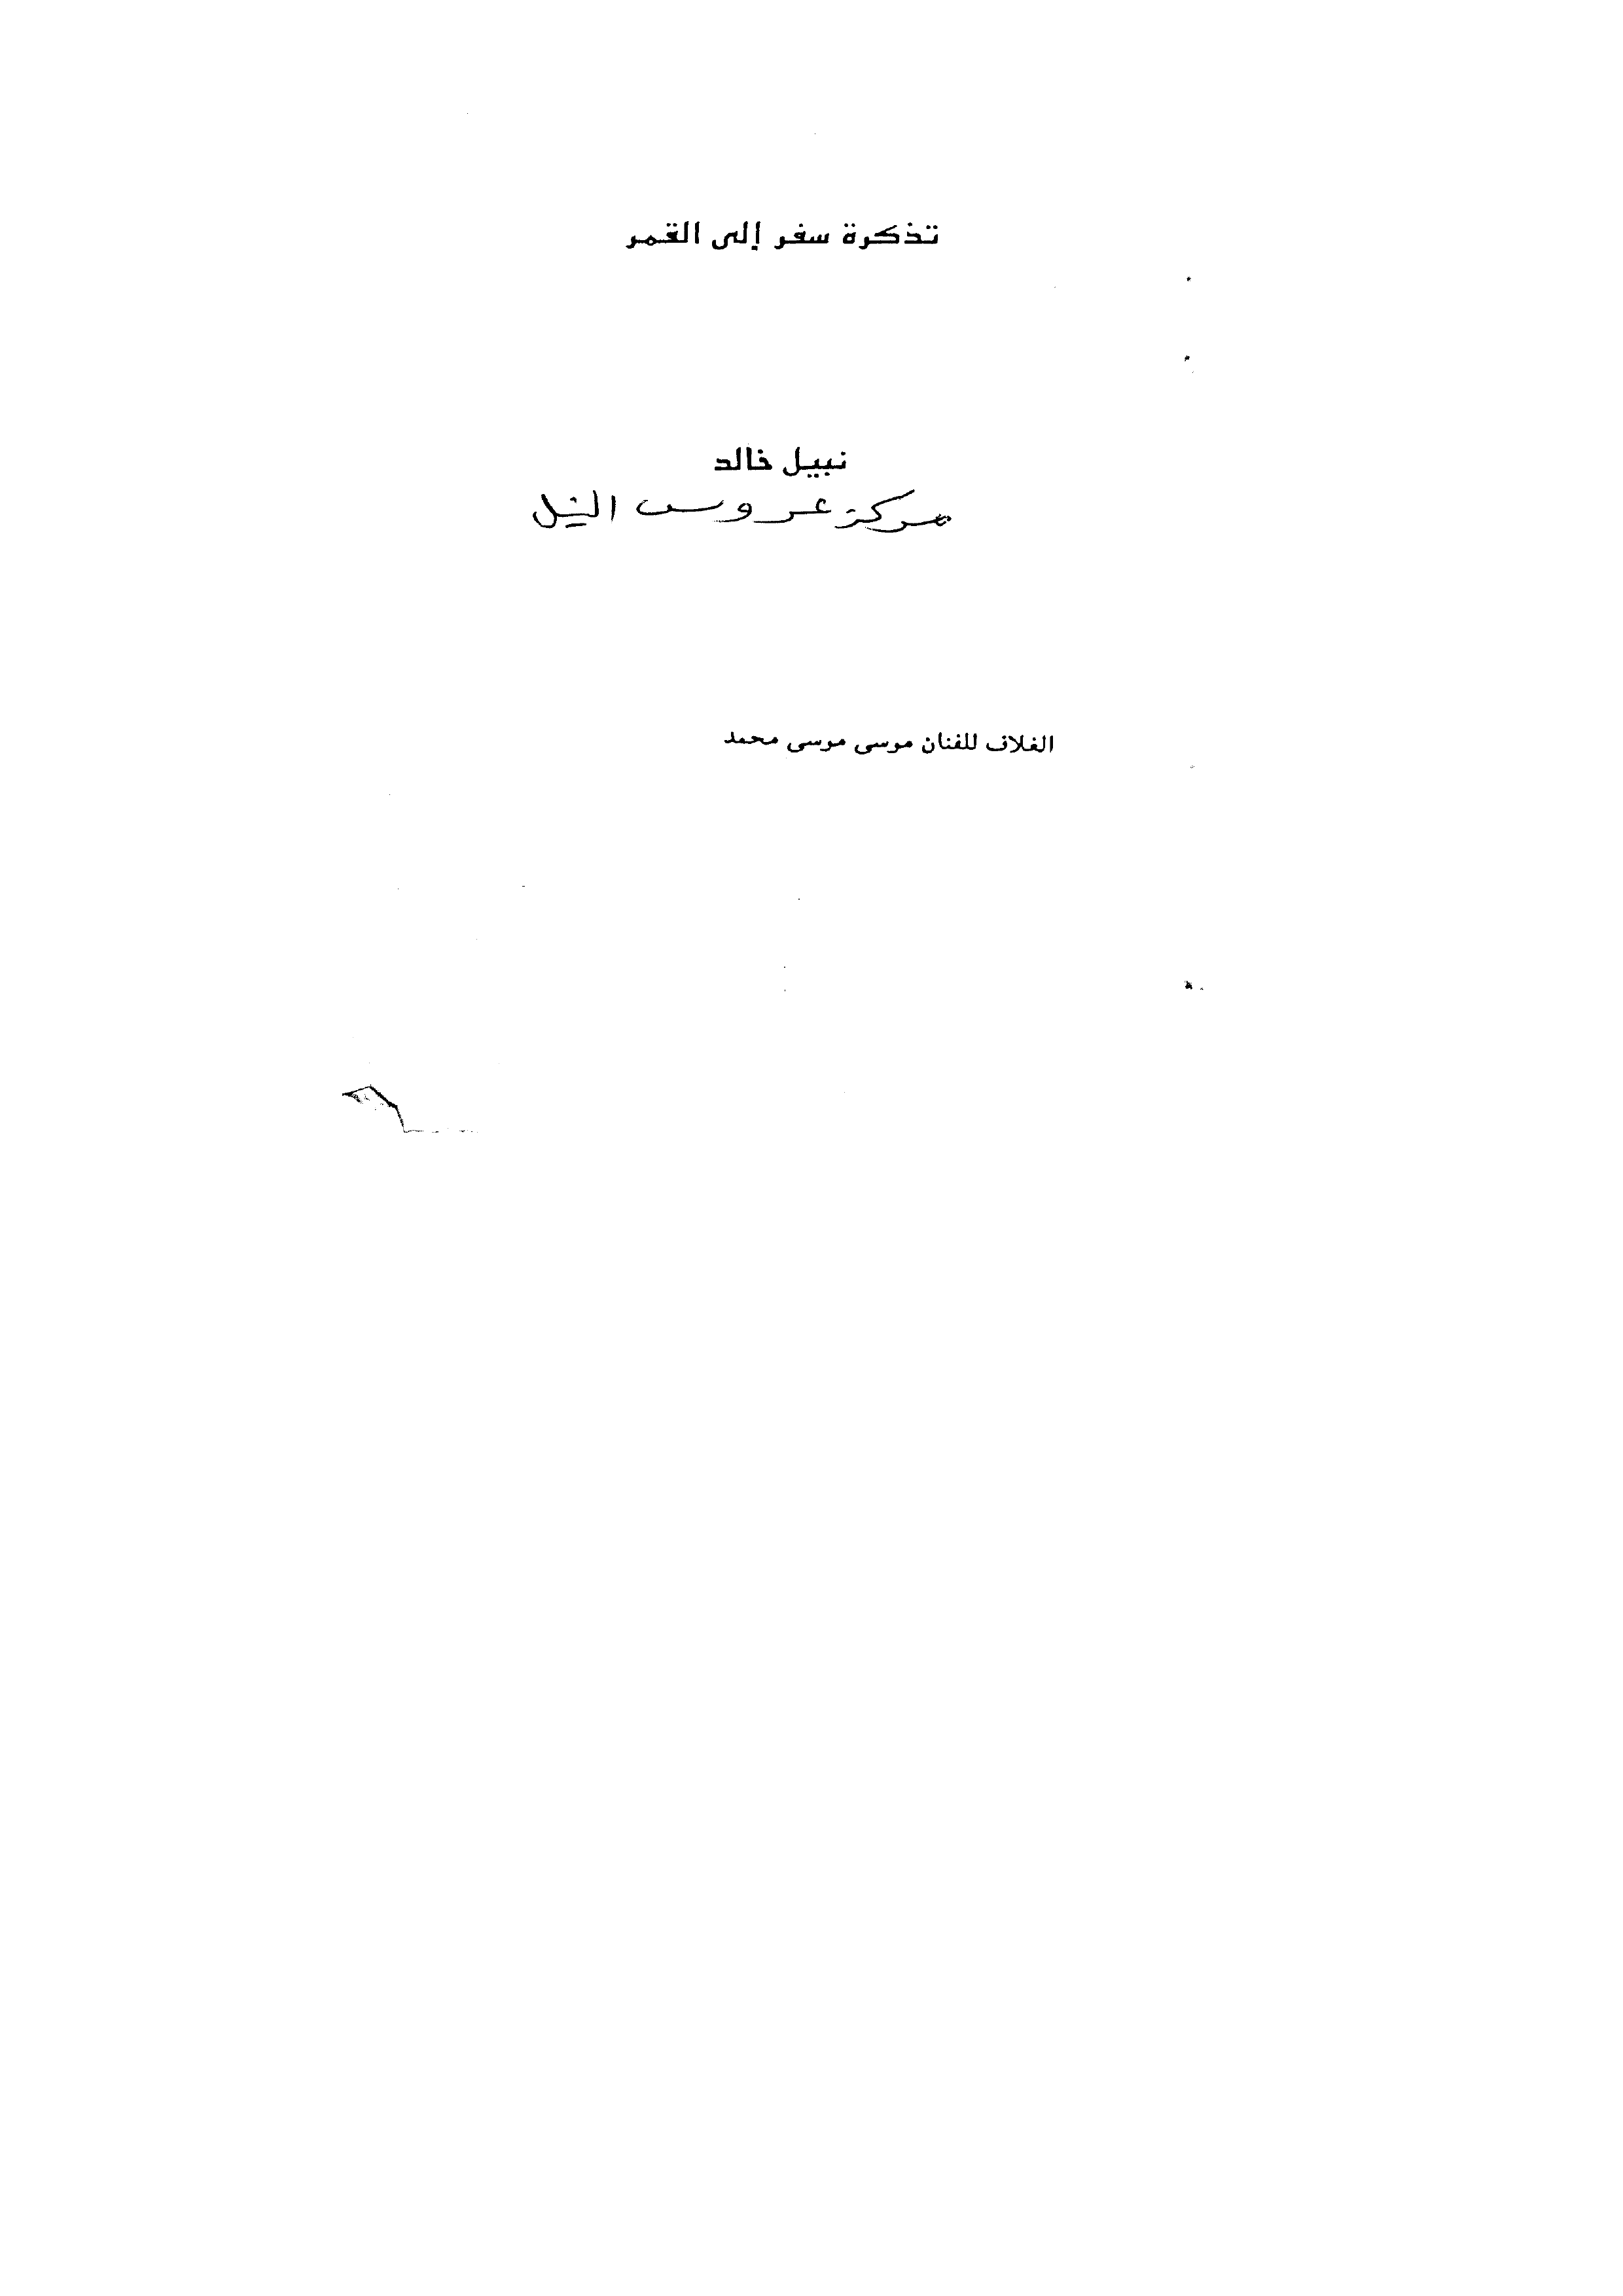 تذكرة سفر إلى القمر
نبيل خالد
مركز عروس النيل
الغلاف للفنان موسى موسى محمد